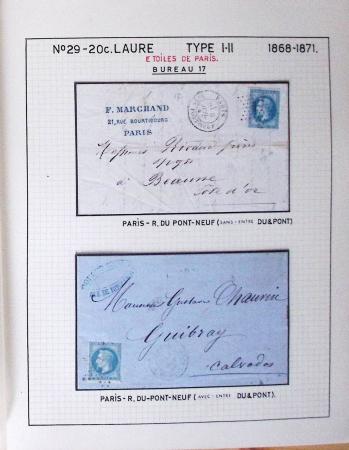 No29-20c. LAURE TYPE I-II 1868-1871.
ETOILES DE PARIS.
BUREAU 17
F. MARCHAND
21, RUE BOURTIBOURG
PARIS
Messieurs Bivard frères
à Beaune
Côte d'or
PARIS
PARIS-R. DU PONT-NEUF (SANS-ENTRE DU&PONT)
Monsieur Gustave Chauvin
Guibray
Calvados
PARIS-R. DU-PONT-NEUF (AVEC-ENTRE DU&PONT).